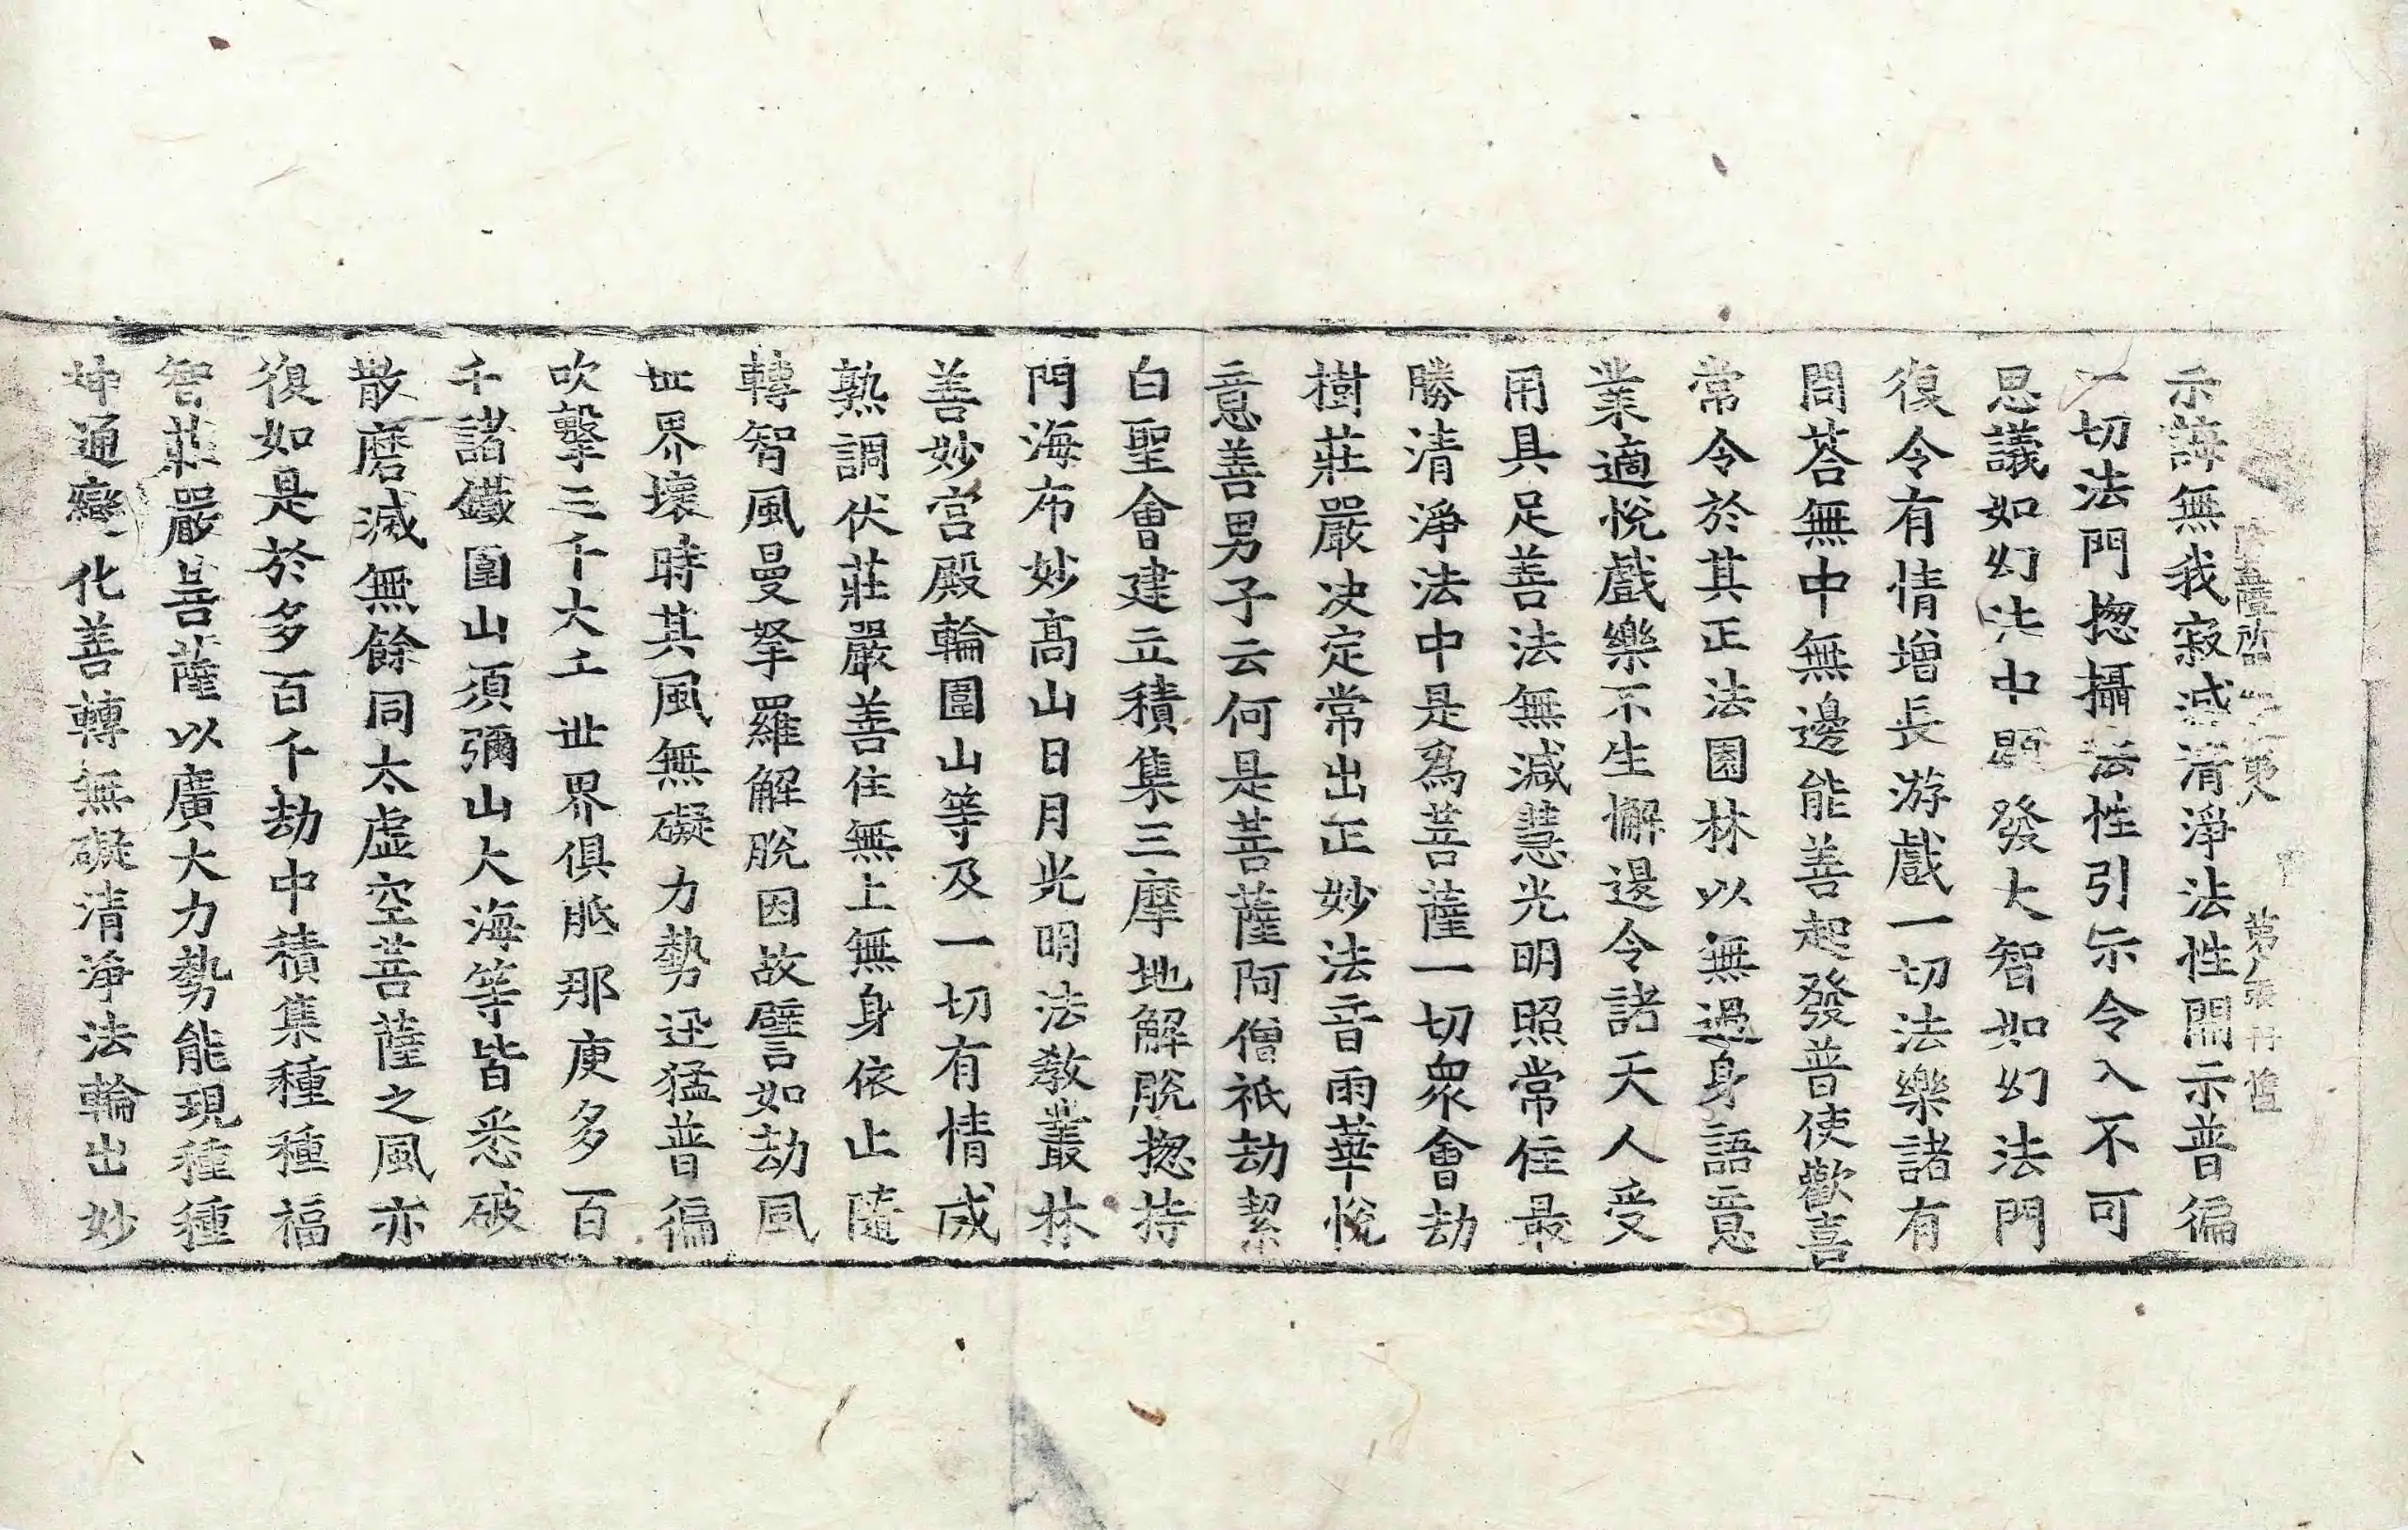 示誨無我寂滅清淨法性開示普徧
一切法門揔攝法性引示令入不可
思議如幻法中顕發大智如幻法門
復令有情增長游戲一切法樂諸有
問荅無中無邊能善起發普使歡喜
常令於其正法園林以無過身語意
業適悅戲樂不生懈邊令諸天人受
用具足善法無減慧光明照常住最
勝清淨法中是爲菩薩一切衆會劫
樹莊嚴决定常出正妙法音雨華悅
意善男子云何是菩薩阿僧祇劫絜
白聖會建立積集三摩地解脫揔持
門海布妙高山日月光明法教叢林
善妙宫殿輪圍山等及一切有情成
熟調伏莊嚴善住無上無身依止隨
轉智風曼拏羅解脫因故譬如劫風
世界壞時其風無礙力勢迅猛普徧
吹擊三千大千世界俱胝那庾多百
千諸鐵圍山須彌山大海等皆悉破
散磨滅無餘同太虛空菩薩之風亦
復如是於多百千劫中積集種種福
智莊嚴菩薩以廣大力勢能現種種
神通變化善轉無礙清淨法輪出妙